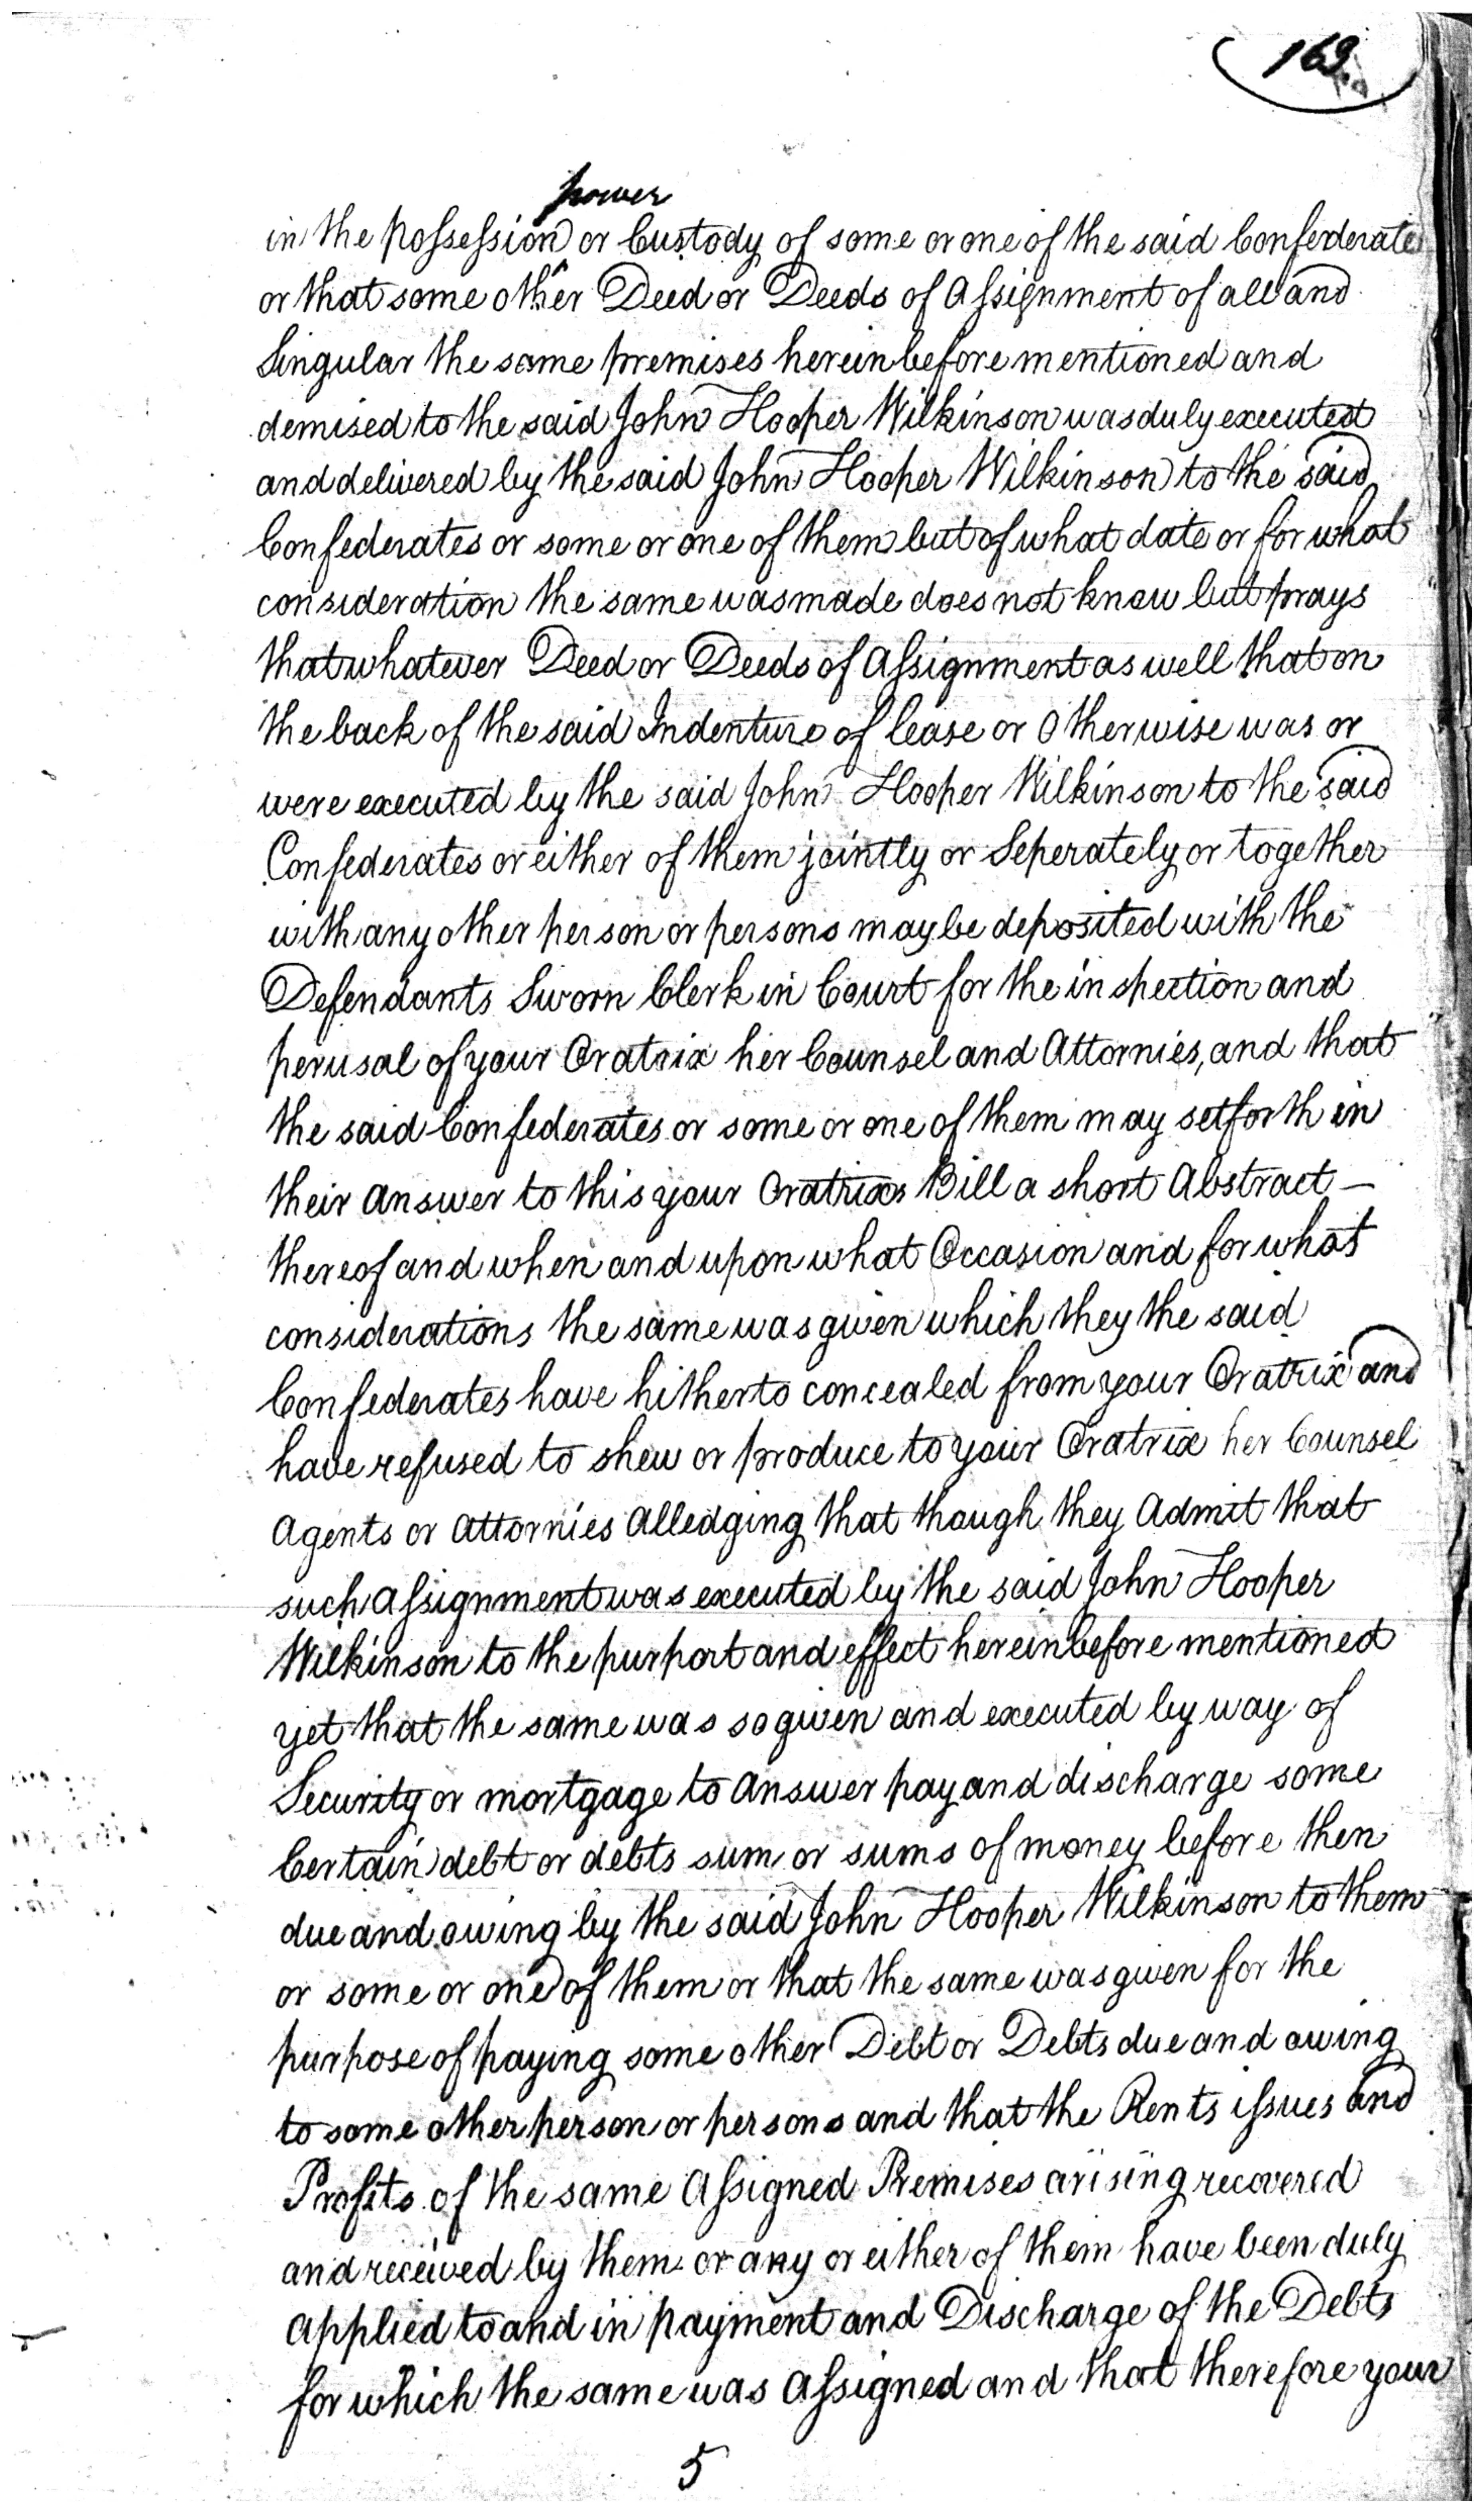 169.
power
in the possession or Custody of some or one of the said Confederates
or that some other Deed or Deeds of Assignment of all and
Singular the same premises herein before mentioned and
demised to the said John Hooper Wilkinson was duly executed
and delivered by the said John Hooper Wilkinson to the said
Confederates or some or one of them but of what date or for what
consideration the same was made does not know but prays
that whatever Deed or Deeds of Assignment as well that on
the back of the said Indenture of lease or Otherwise was or
were executed by the said John Hooper Wilkinson to the said
Confederates or either of them jointly or Seperately or together
with any other person or persons may be deposited with the
Defendants Sworn Clerk in Court for the inspection and
perusal of your Oratrix her Counsel and Attornies, and that
the said Confederates or some or one of them may set forth in
their Answer to this your Oratrixs Bill a short Abstract —
thereof and when and upon what Occasion and for what
considerations the same was given which they the said
Confederates have hitherto concealed from your Oratrix and
have refused to shew or produce to your Oratrix her Counsel
Agents or Attornies Alledging that though they Admit that
such Assignment was executed by the said John Hooper
Wilkinson to the purport and effect herein before mentioned
yet that the same was so given and executed by way of
Security or mortgage to Answer pay and discharge some
Certain debt or debts sum or sums of money before then
due and owing by the said John Hooper Wilkinson to them
or some or one of them or that the same was given for the
purpose of paying some other Debt or Debts due and owing
to some other person or persons and that the Rents issues and
Profits of the same Assigned Premises arising recovered
and received by them or any or either of them have been duly
Applied to and in payment and Discharge of the Debts
for which the same was Assigned and that therefore your
5